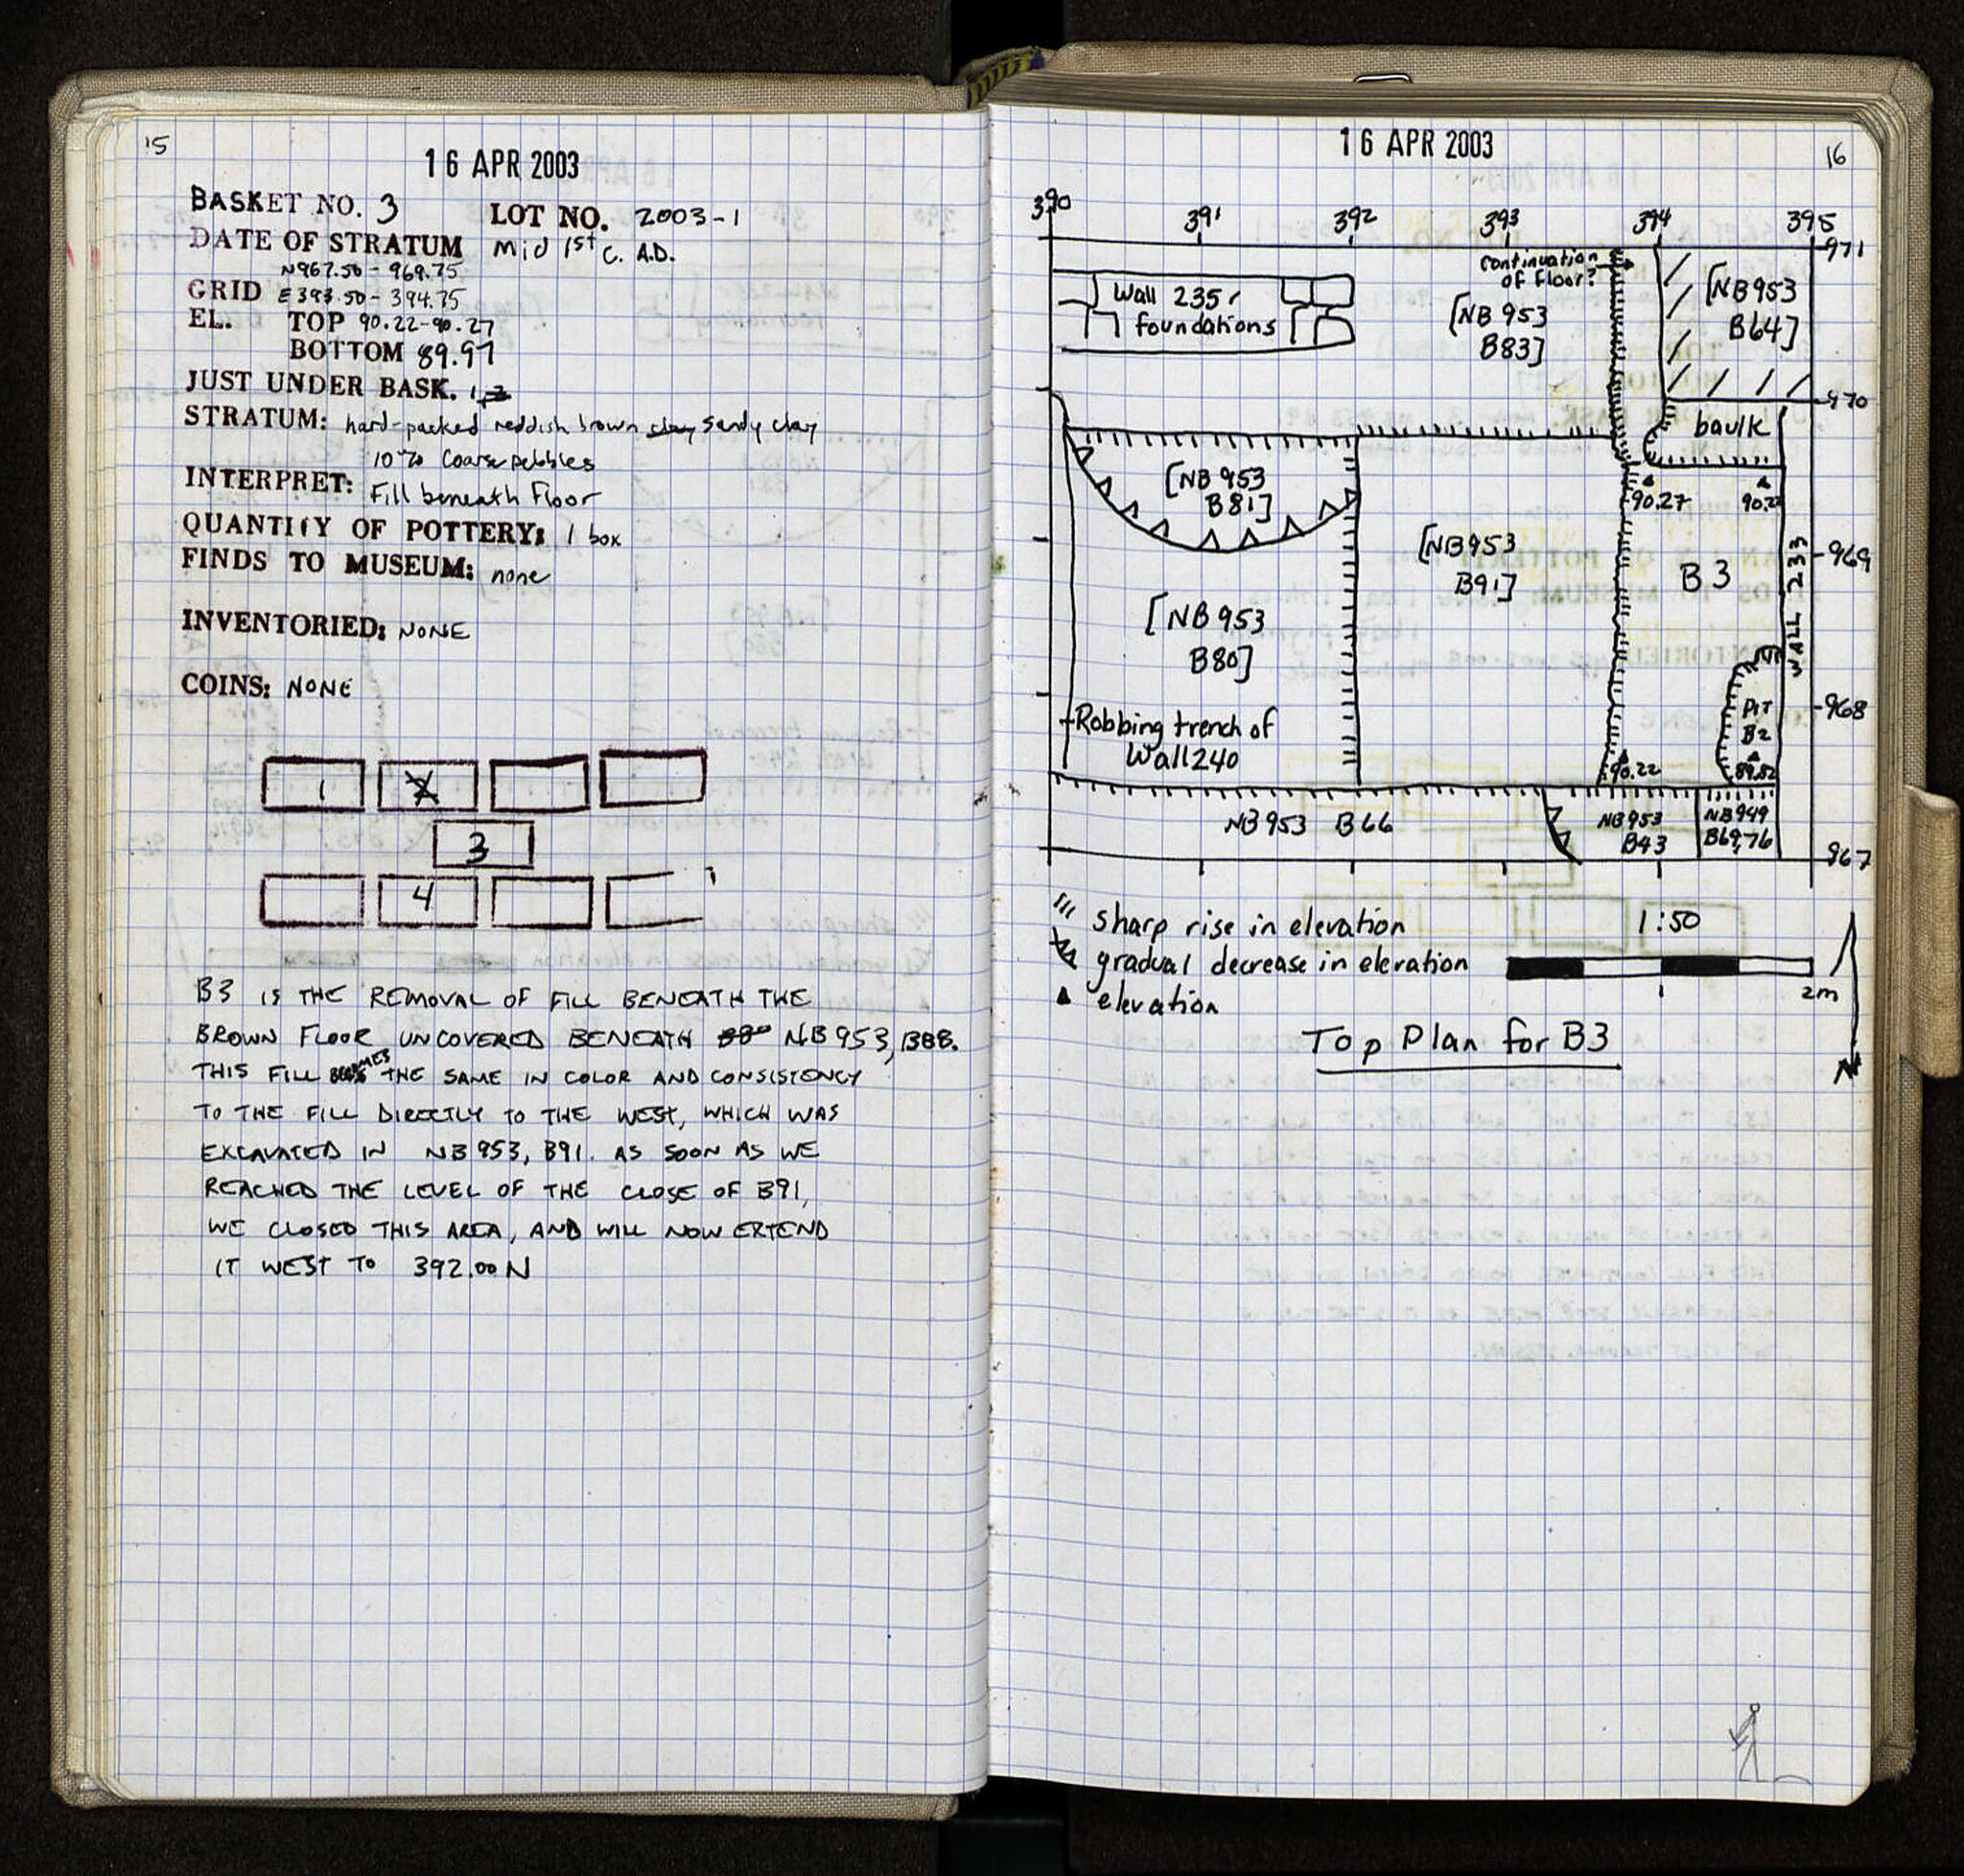 15
16 APR 2003
BASKET NO. 3 LOT NO. 2003-1
DATE OF STRATUM Mid 1st c. A.D.
N967.50 - 969.75
GRID E393.50 - 394.75
EL. TOP 90.22-90.27
BOTTOM 89.97
JUST UNDER BASK. 1,2
STRATUM: hard-packed reddish brown clay sandy clay
10% coarse pebbles
INTERPRET: Fill beneath Floor
QUANTITY OF POTTERY: 1 box
FINDS TO MUSEUM: none
INVENTORIED: NONE
COINS: NONE
1 2
3
4
B3 IS THE REMOVAL OF FILL BENEATH THE
BROWN FLOOR UNCOVERED BENEATH NB 953, B88.
THIS FILL BECOMES THE SAME IN COLOR AND CONSISTENCY
TO THE FILL DIRECTLY TO THE WEST, WHICH WAS
EXCAVATED IN NB 953, B91. AS SOON AS WE
REACHED THE LEVEL OF THE CLOSE OF B91,
WE CLOSED THIS AREA, AND WILL NOW EXTEND
IT WEST TO 392.00 N
16 APR 2003
16
390 391 392 393 394 395
971
continuation
of floor?
Wall 235
foundations
[NB 953
B83]
[NB953
B64]
970
baulk
[NB 953
B81]
90.27
[NB953
B91]
B3
WALL 233
969
[NB 953
B80]
PIT
B2
968
Robbing trench of
Wall 240
90.22
89.82
NB 953 B66
NB953
B43
NB949
B69,76
967
sharp rise in elevation
1:50
gradual decrease in elevation
1
2m
elevation
Top Plan for B3
N